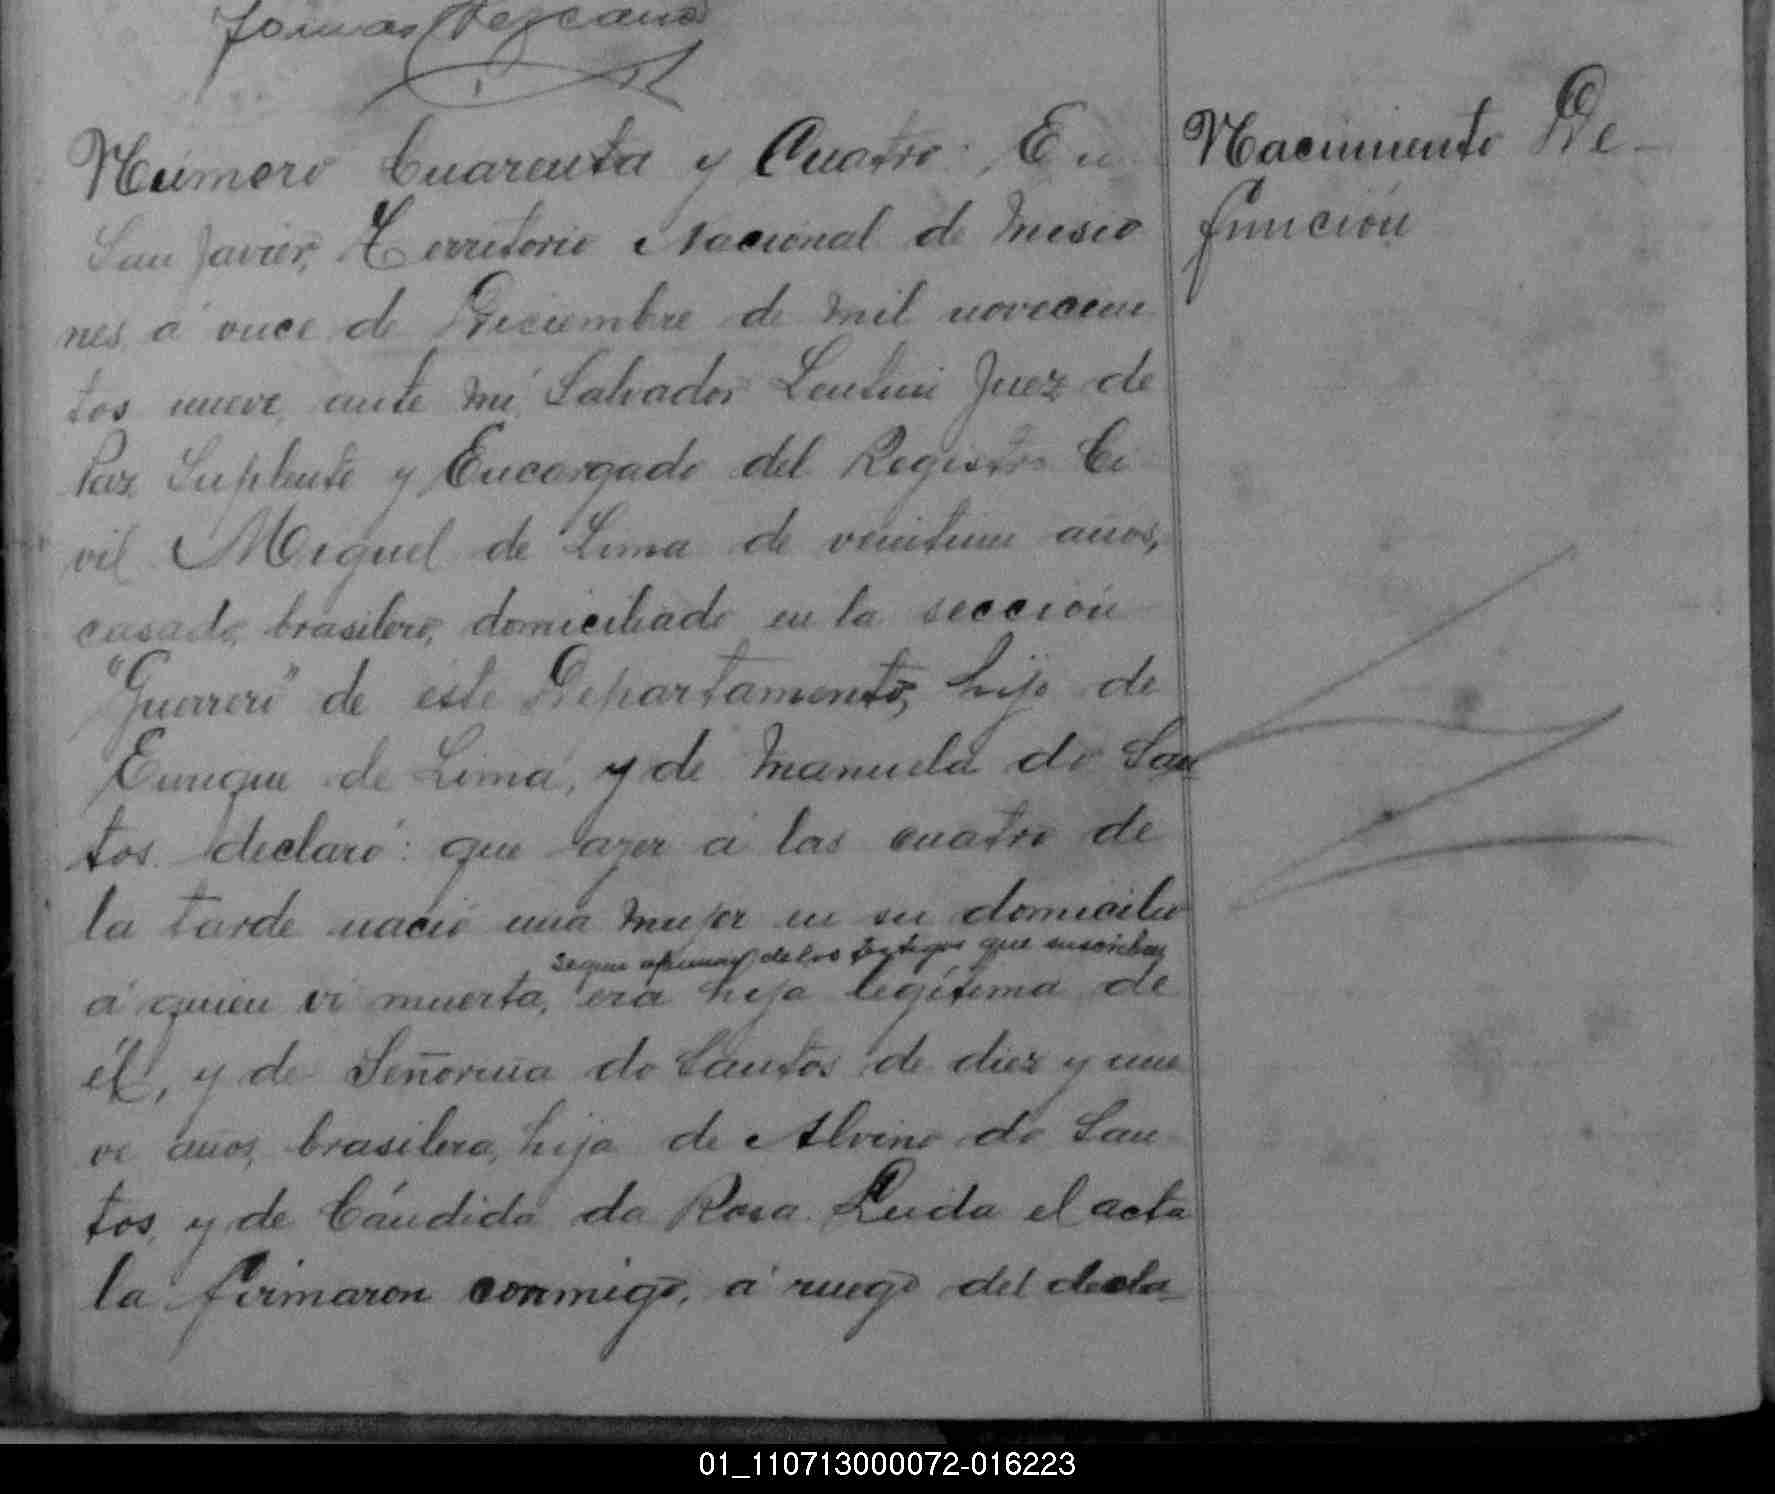 Tomas
Número Cuarenta y Cuatro. En
San Javier, Territorio Nacional de Misio
nes á once de Diciembre de mil novecien
tos nueve, ante mí, Salvador Lentini Juez de
Paz Suplente y Encargado del Registro Ci
vil Miguel de Lima de veintiun años,
casado, brasilero, domiciliado en la sección
"Guerrero" de este Departamento, hijo de
Enrique de Lima, y de Manuela do San
tos declaró: que ayer á las cuatro de
la tarde nació una mujer en su domicilio
segun de los testigos que suscriben
á quien vi muerta, era hija legítima de
él, y de Señorina do Santos de diez y nue
ve años, brasilera, hija de Alvino do San
tos, y de Cándida da Rosa. Leida el acta
la firmaron conmigo, á ruego del decla
Nacimiento De-
función
01_110713000072-016223